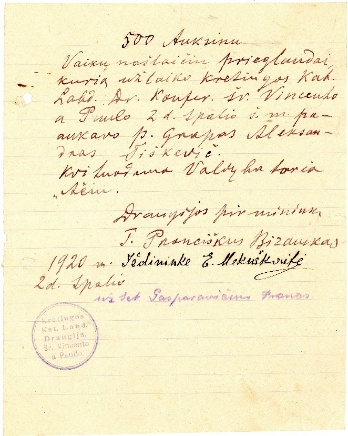 500 Auksinu
Vaikų našlaičių prieglaudai,
kurią užlaiko Kretingos Kat.
Labd. Dr. Konfer. šv. Vincento
a Paulo 2 d. spalio š. m. pa-
aukavo p. Grapas Aleksan-
dras Tiškevič.
Kvituodama Valdyba taria
"Ačiu.
Draugijos pirminink.
T. Pranciškus Bizauskas
1920 m. Iždininkė E. Mokuškaitė
2 d. spalio
už sek. Gasparavičius Pranas
Kretingos
Kat. Labd.
Draugija
Šv. Vincento
a Paulo